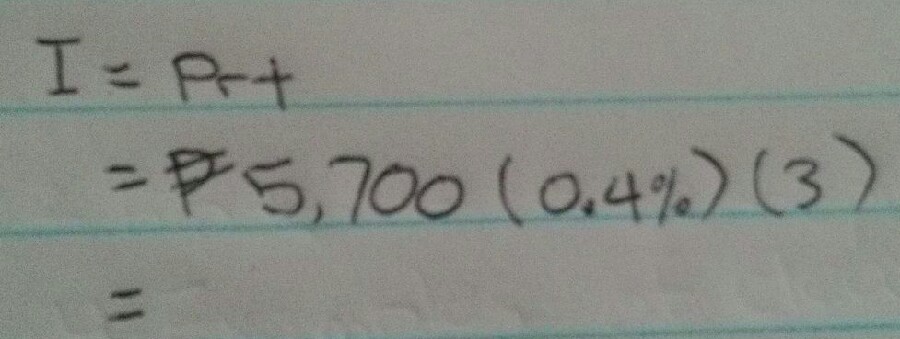 I = Prt
= ₱5,700 (0.4%) (3)
=